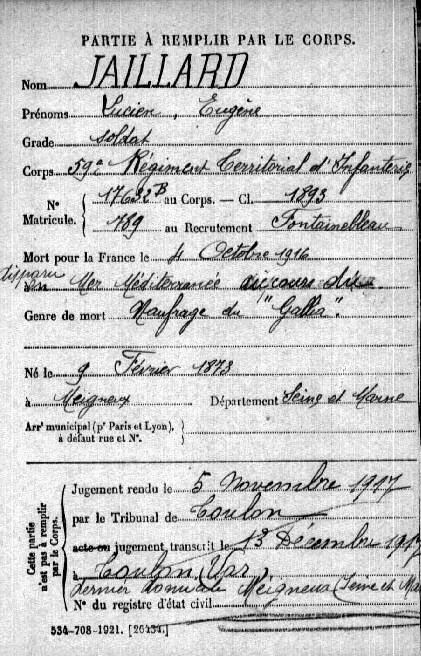 PARTIE À REMPLIR PAR LE CORPS.
Nom JAILLARD
Prénoms Lucien, Eugène
Grade soldat
Corps 59e Régiment Territorial d'Infanterie
N° Matricule. { 17632B au Corps. — Cl. 1893
789 au Recrutement Fontainebleau
Mort pour la France le 4 Octobre 1916
disparu
en Mer Méditerranée au cours du
Genre de mort Naufrage du "Gallia".
Né le 9 Février 1873
à Meigneux Département Seine et Marne
Arrt municipal (pr Paris et Lyon),
à défaut rue et N°.
Cette partie n'est pas à remplir par le Corps.
Jugement rendu le 5 Novembre 1917
par le Tribunal de Toulon
acte ou jugement transcrit le 13 Décembre 1917
à Toulon (Var)
dernier domicile Meigneux (Seine et Ma
N° du registre d'état civil
534-708-1921. [26434.]